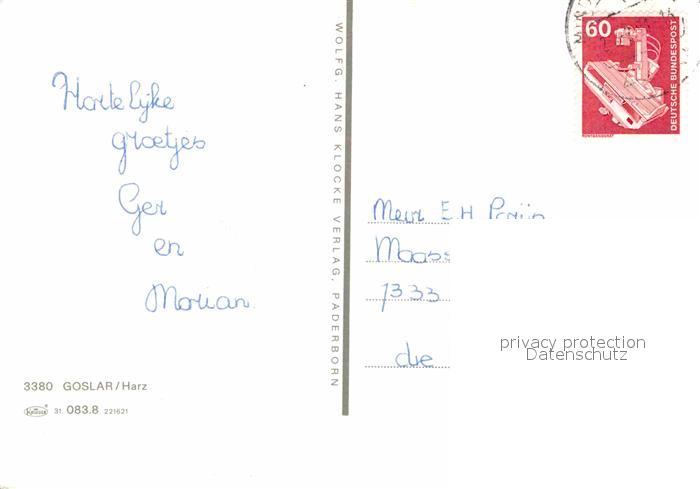 Hartelijke
groetjes
Ger
en
Marian.
3380 GOSLAR/Harz
Krüger 31 083.8 221621
WOLFG. HANS KLOCKE VERLAG, PADERBORN
60
DEUTSCHE BUNDESPOST
E H
Maass
1333
die
privacy protection
Datenschutz